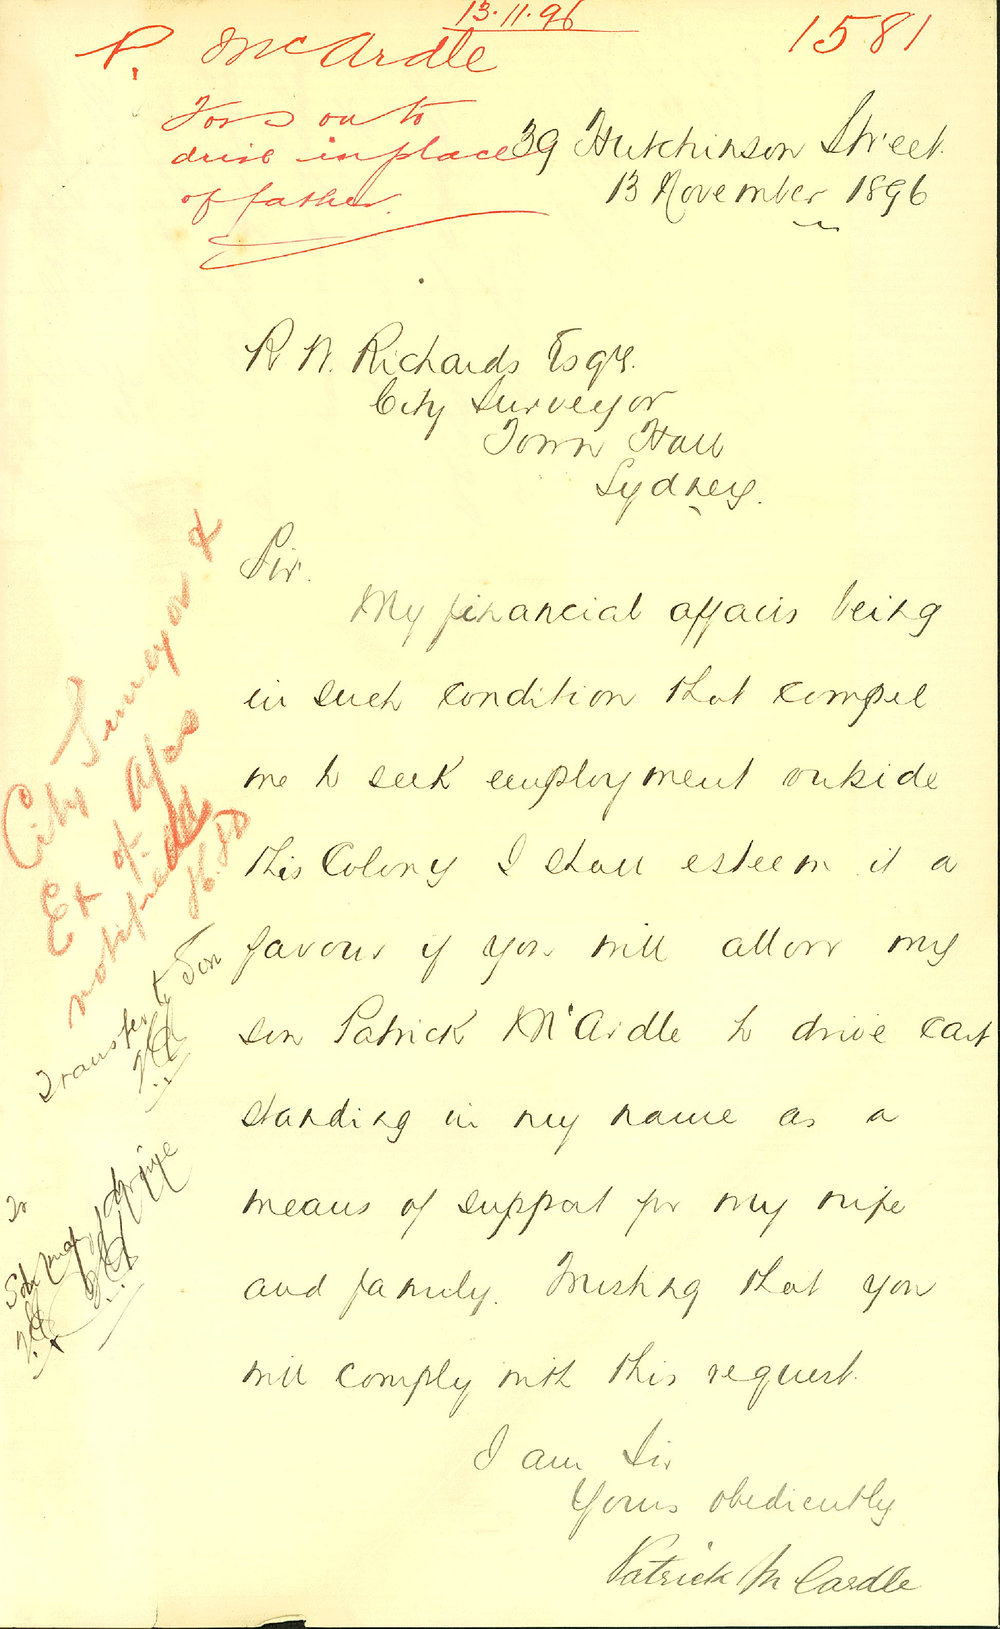 13.11.96
P. McArdle
1581
For son to
drive in place
of father.
39 Hutchinson Street.
13 November 1896
R W. Richards Esqre.
City Surveyor
Town Hall
Sydney.
Sir.
My financial affairs being
in such condition that compel
me to seek employment outside
this Colony I shall esteem it a
favour if you will allow my
son Patrick McArdle to drive cart
standing in my name as a
means of support for my wife
and family. Trusting that you
will comply with this request.
I am Sir
Yours obediently
Patrick McCardle
City Surveyor &
Ex of
notified
Transfer to Son
To